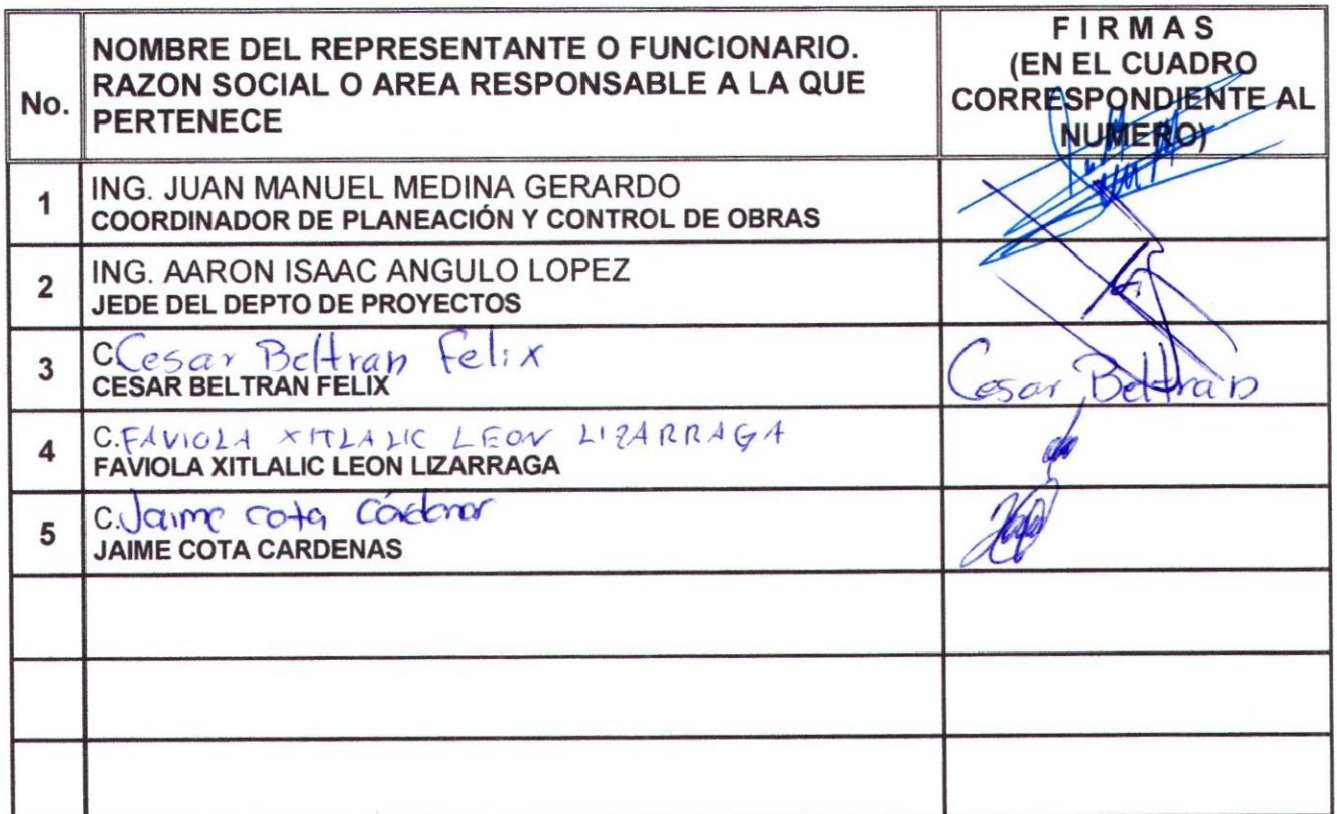 No.
NOMBRE DEL REPRESENTANTE O FUNCIONARIO.
RAZON SOCIAL O AREA RESPONSABLE A LA QUE
PERTENECE
FIRMAS
(EN EL CUADRO
CORRESPONDIENTE AL
NUMERO)
1
ING. JUAN MANUEL MEDINA GERARDO
COORDINADOR DE PLANEACIÓN Y CONTROL DE OBRAS
2
ING. AARON ISAAC ANGULO LOPEZ
JEDE DEL DEPTO DE PROYECTOS
3
C. Cesar Beltran Felix
CESAR BELTRAN FELIX
Cesar Beltran
4
C. FAVIOLA XITLALIC LEON LIZARRAGA
FAVIOLA XITLALIC LEON LIZARRAGA
5
C. Jaime cota Cárdenas
JAIME COTA CARDENAS